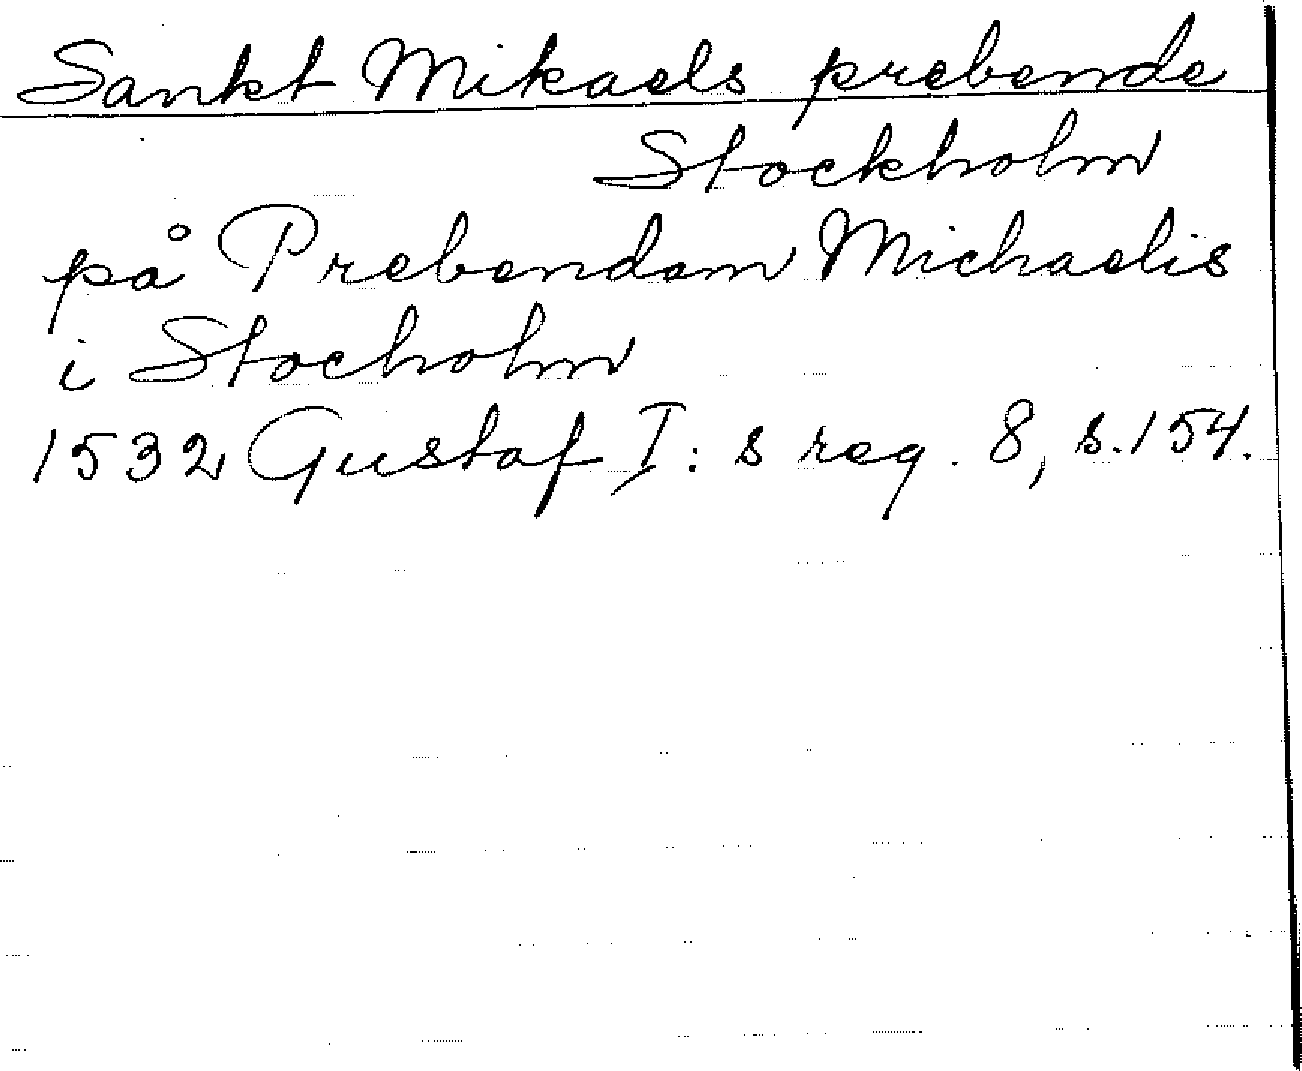 Sankt Mikaels prebende
Stockholm
på Prebendam Michaelis
i Stocholm
1532 Gustaf I:s reg. 8, s.154.